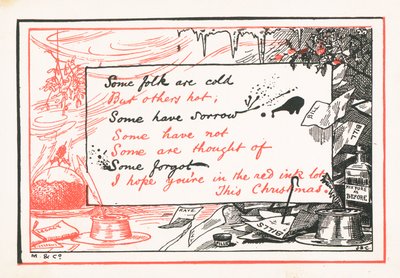 Some folk are cold
But others hot;
Some have sorrow
Some have not
Some are thought of
Some forgot
I hope you're in the red ink lot
This Christmas.
BILL
BILLS
MIXTURE
AS
BEFORE
RATES
BILLS
M. & Co.